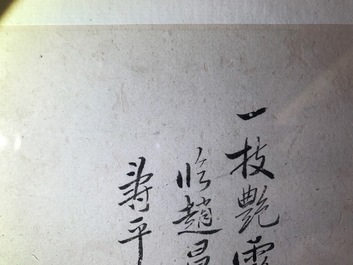 一枝艷雪
臨趙昌
壽平